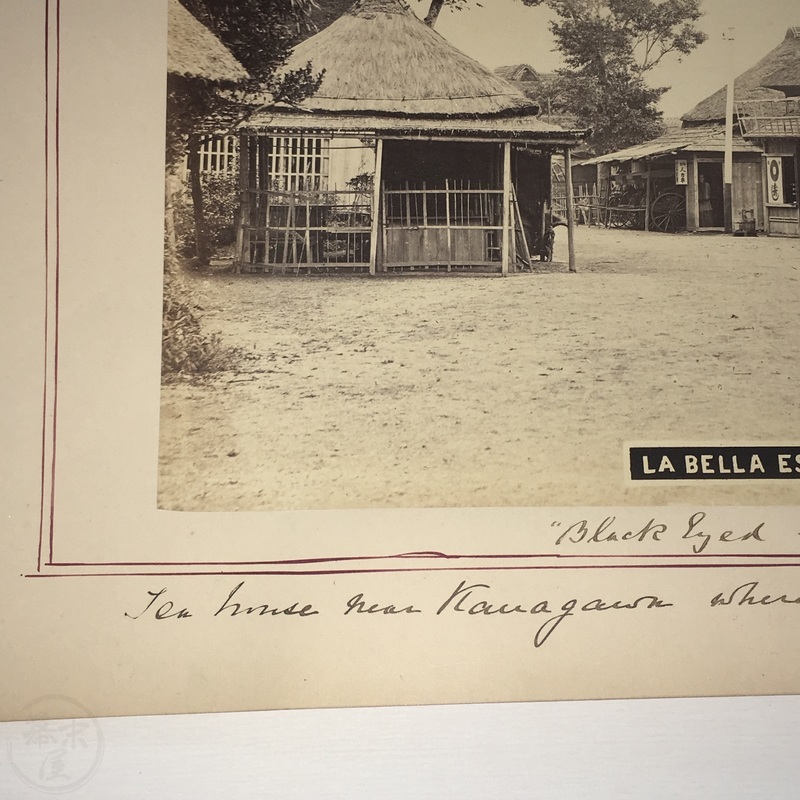 LA BELLA ES
"Black Eyed
Tea house near Kanagawa where